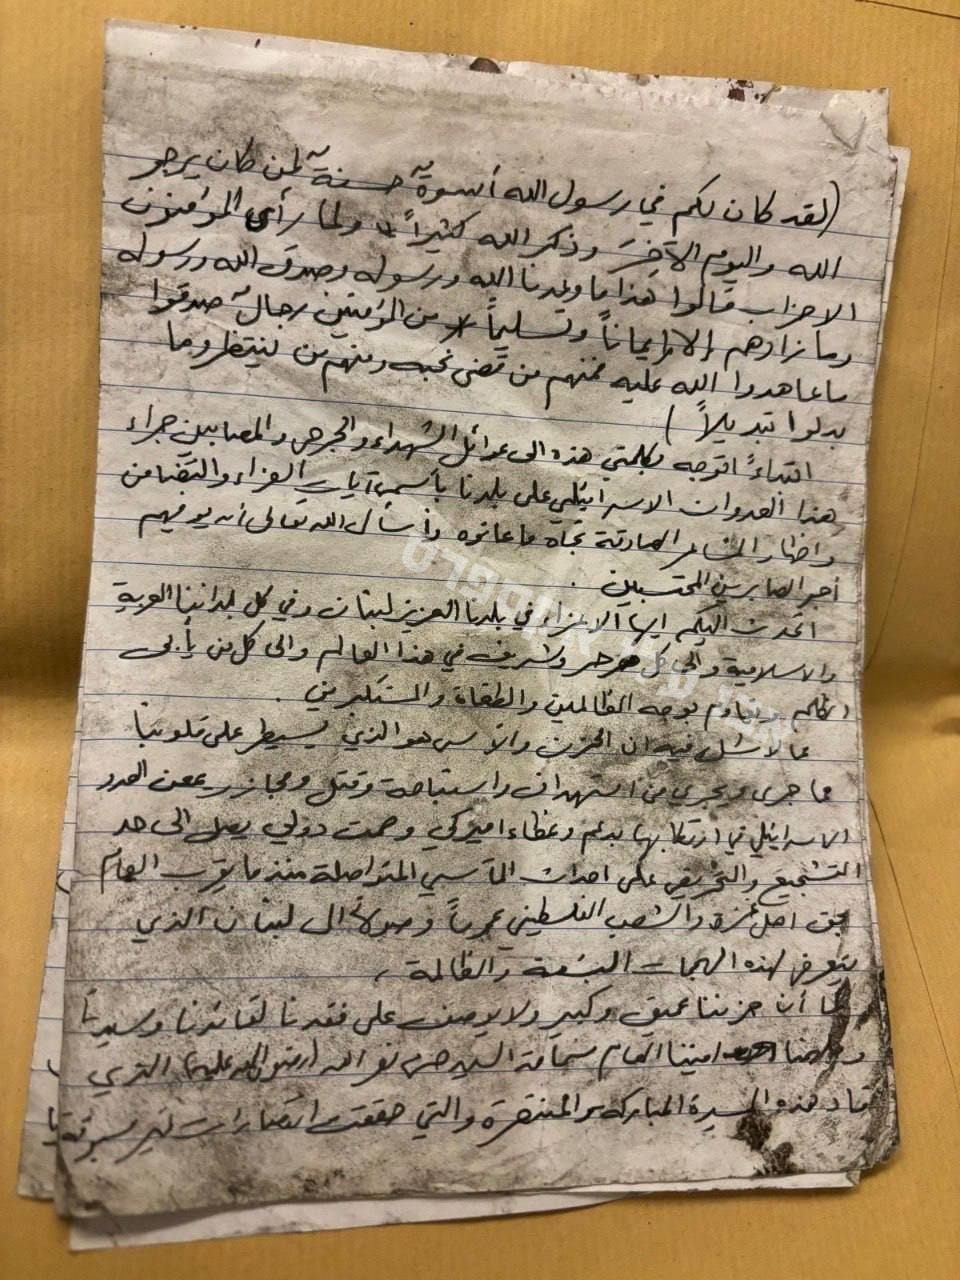 (لقد كان لكم في رسول الله أسوةٌ حسنةٌ لمن كان يرجو
الله واليوم الآخِرَ وذكر الله كثيراً * ولما رأى المؤمنون
الاحزاب قالوا هذا ما وعدنا الله ورسوله وصدق الله ورسوله
وما زادهم إلا إيماناً وتسليماً * من المؤمنين رجالٌ صدقوا
ما عاهدوا الله عليه فمنهم من قضى نحبه ومنهم من ينتظر وما
بدلوا تبديلاً)
ابتداءً اتوجه بكلمتي هذه الى عوائل الشهداء والجرحى والمصابين جراء
هذا العدوان الاسرائيلي على بلدنا بأسمى آيات العزاء والتضامن
واظهار المشاعر الصادقة تجاه ما عانوه وأسأل الله تعالى أن يوفيهم
أجر الصابرين المحتسبين .
اتحدث اليكم ايها الاعزاء في بلدنا العزيز لبنان وفي كل بلداننا العربية
والاسلامية والى كل حر وشريف في هذا العالم والى كل من يأبى
الظلم ويقاوم بوجه الظالمين والطغاة والمستكبرين .
مما لا شك فيه ان الحزن والأسى هو الذي يسيطر على قلوبنا
مما جرى ويجري من استهداف واستباحة وقتل ومجازر يمعن العدو
الاسرائيلي في ارتكابها بدعم وغطاء اميركي وصمت دولي يصل الى حد
التشجيع والتحريض على احداث المآسي المتواصلة منذ ما يقرب العام
بحق اهل غزة والشعب الفلسطيني عموماً وصولاً الى لبنان الذي
يتعرض لهذه الهجمات البشعة والظالمة ،
كما أن حزننا عميق وكبير ولا يوصف على فقدنا لقائدنا وسيدنا
امينا العام سماحة السيد حسن نصر الله (رضوان الله عليه) الذي
قاد هذه المسيرة المباركة والمنتصرة والتي حققت انتصارات غير مسبوقة